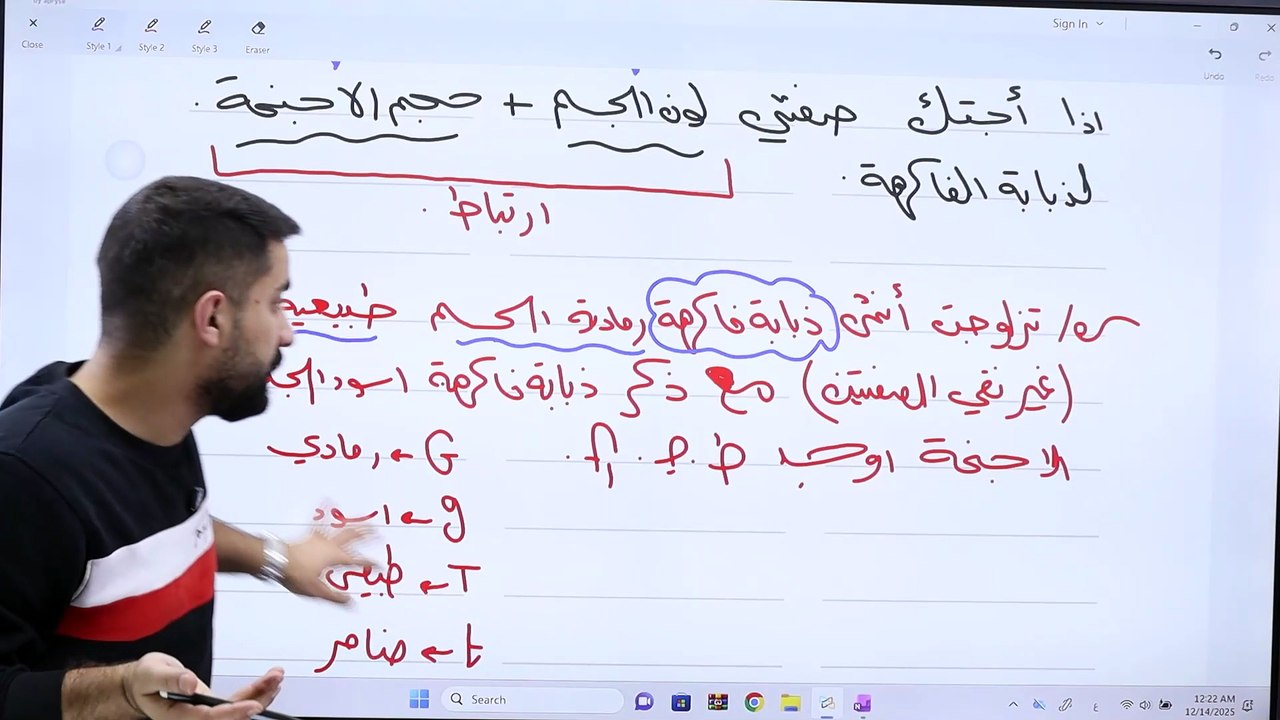 Close
Style 1
Style 2
Style 3
Eraser
Sign In
Undo
Redo
اذا أجتك صفتي لون الجسم + حجم الاجنحة .
لذبابة الفاكهة .
ارتباط .
س/ تزاوجت أنثى ذبابة فاكهة رمادية الجسم طبيعية
(غير نقي الصفتين) مع ذكر ذبابة فاكهة اسود
الاجنحة اوجد ط . ج . f₁ .
G ← رمادي
g ← اسود
T ← طبيعي
t ← ضامر
Search
12:22 AM
12/14/2025